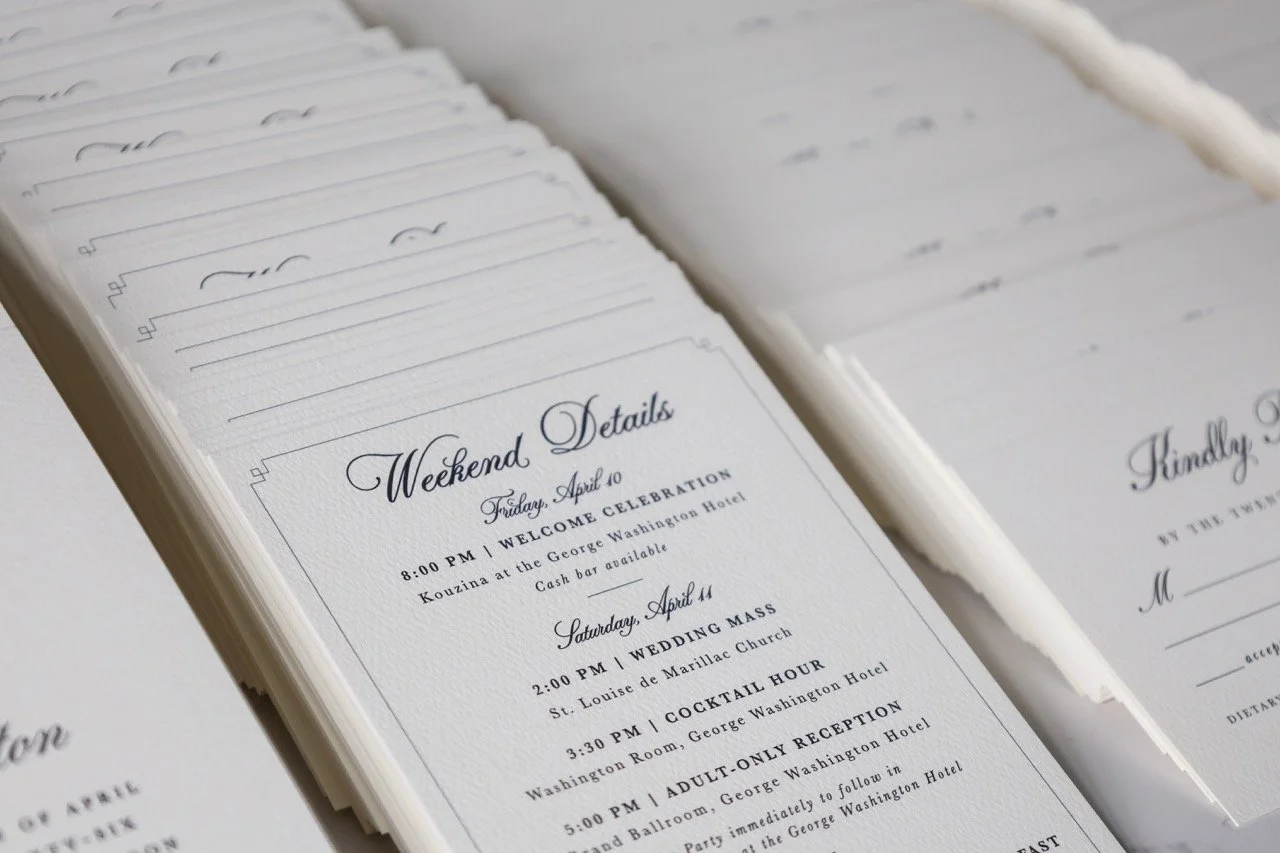 Weekend Details
Friday, April 10
8:00 PM | WELCOME CELEBRATION
Kouzina at the George Washington Hotel
Cash bar available
Saturday, April 11
2:00 PM | WEDDING MASS
St. Louise de Marillac Church
3:30 PM | COCKTAIL HOUR
Washington Room, George Washington Hotel
5:00 PM | ADULT-ONLY RECEPTION
Ballroom, George Washington Hotel
Party immediately to follow in
at the George Washington Hotel
Kindly
BY THE
M
DIETARY
OF APRIL